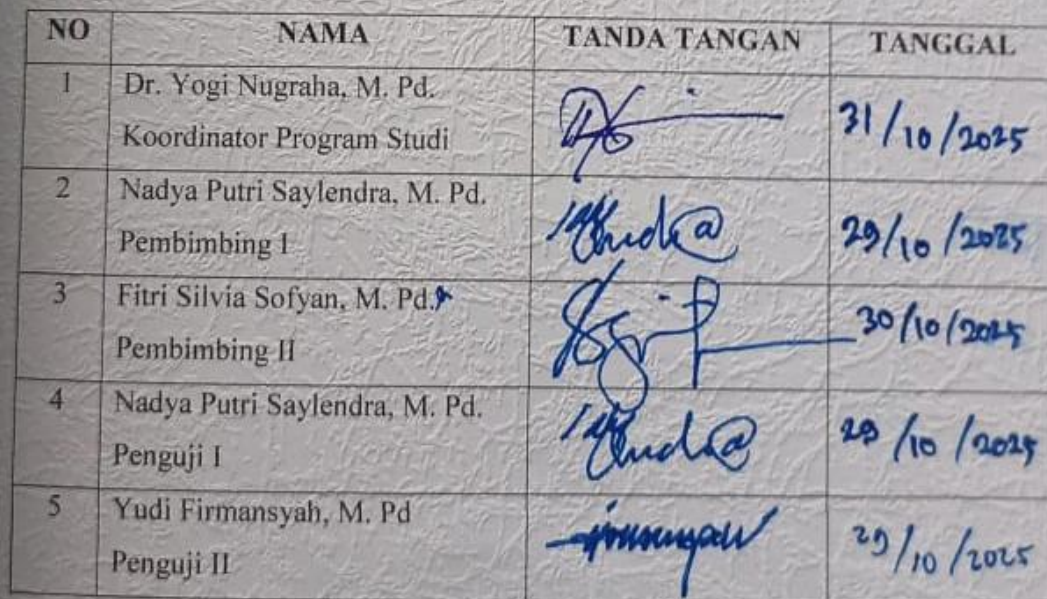 NO NAMA TANDA TANGAN TANGGAL
1 Dr. Yogi Nugraha, M. Pd.
Koordinator Program Studi 31/10/2025
2 Nadya Putri Saylendra, M. Pd.
Pembimbing I 29/10/2025
3 Fitri Silvia Sofyan, M. Pd.
Pembimbing II 30/10/2025
4 Nadya Putri Saylendra, M. Pd.
Penguji I 29/10/2025
5 Yudi Firmansyah, M. Pd
Penguji II 29/10/2025